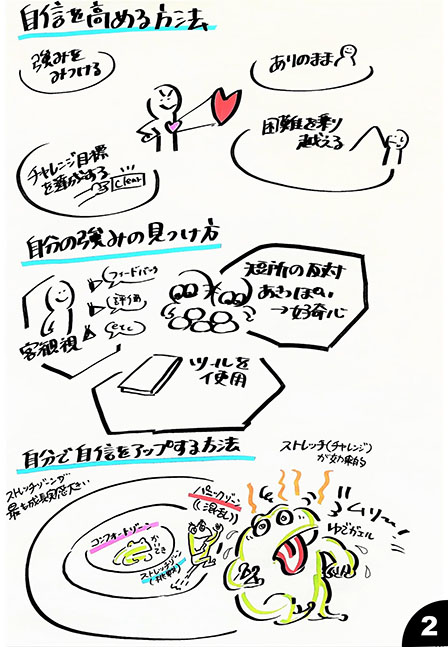 自信を高める方法
強みを
みつける
ありのまま
困難を乗り
越える
チャレンジ目標
を達成する
clear
自分の強みの見つけ方
フィードバック
評価
etc
客観視
短所の反対
あきっぽい
→好奇心
ツールを
使用
自分で自信をアップする方法
ストレッチ(チャレンジ)
が効果的
ストレッチゾーンが
最も成長実感大きい
パニックゾーン
(混乱)
コンフォートゾーン
ストレッチゾーン
(挑戦)
ムリー!
ゆでガエル
2